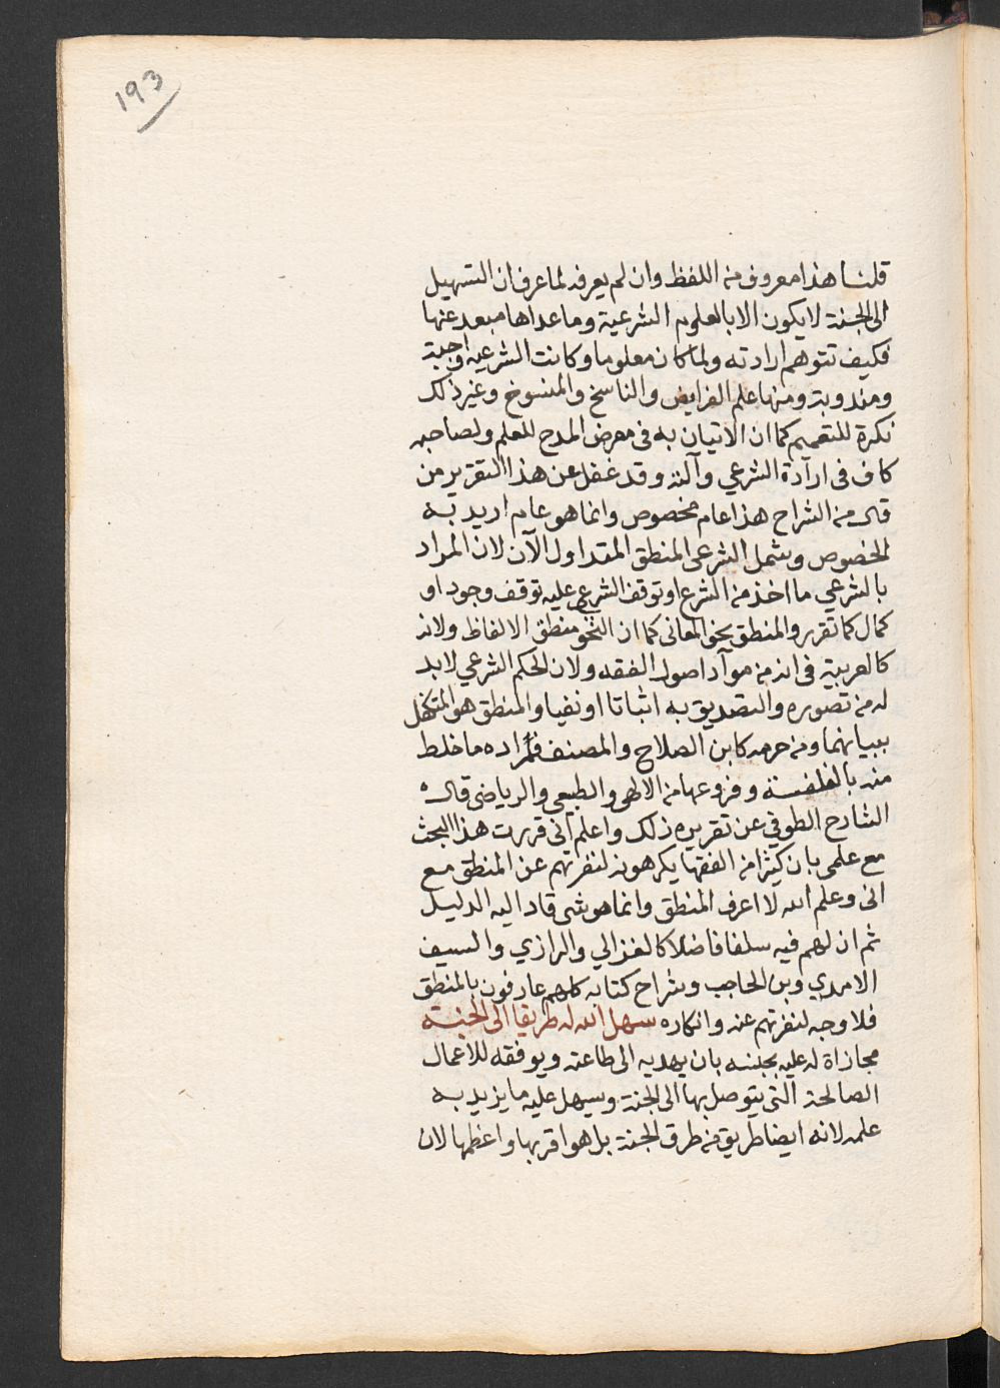 193
قلنا هذا معروف من اللفظ وان لم يعرفه لما عرف ان التسهيل
الى الجنة لا يكون الا بالعلوم الشرعية وما عداها مبعد عنها
فكيف تتوهم ارادته ولما كان معلوما وكانت الشرعية واجبة
ومندوبة ومنها علم الفرايض والناسخ والمنسوخ وغير ذلك
نكرة للتعميم كما ان الاتيان به في معرض المدح للعلم ولصاحبه
كاف في ارادة الشرعي وآلته وقد غفل عن هذا التقرير من
قال من الشراح هذا عام مخصوص وانما هو عام اريد به
الخصوص وشمل الشرعى المنطق المتداول الآن لان المراد
بالشرعي ما اخذ من الشرع او توقف الشرعي عليه توقف وجود او
كمال كما تقرر والمنطق نحو المعانى كما ان النحو منطق الالفاظ ولانه
كالعربية في انه من مواد اصول الفقه ولان الحكم الشرعي لابد
له من تصوره والتصديق به اثباتا او نفيا والمنطق هو المتكفل
ببيانهما ومن حرمه كابن الصلاح والمصنف فمراده ما خلط
منه بالفلفسة وفروعها من الالهى والطبيعى والرياضى قال
الشارح الطوفي عن تقريره ذلك واعلم انى قررت هذا البحث
مع علمى بان كثيرا من الفقها يكرهونه لنفرتهم عن المنطق مع
انى وعلم الله لا اعرف المنطق وانما هو شى قاد اليه الدليل
ثم ان لهم فيه سلفا فاضلا كالغزالي والرازي والسيف
الامدي وبن الحاجب وشراح كتابه كلهم عارفون بالمنطق
فلا وجه لنفرتهم عنه وانكاره سهل الله له طريقا الى الجنة
مجازاة له عليه بجنسه بان يهديه الى طاعته ويوفقه للاعمال
الصالحة التى يتوصل بها الى الجنة وسيهل عليه ما يزيد به
علمه لانه ايضا طريق من طرق الجنة بل هو اقربها واعظمها لان